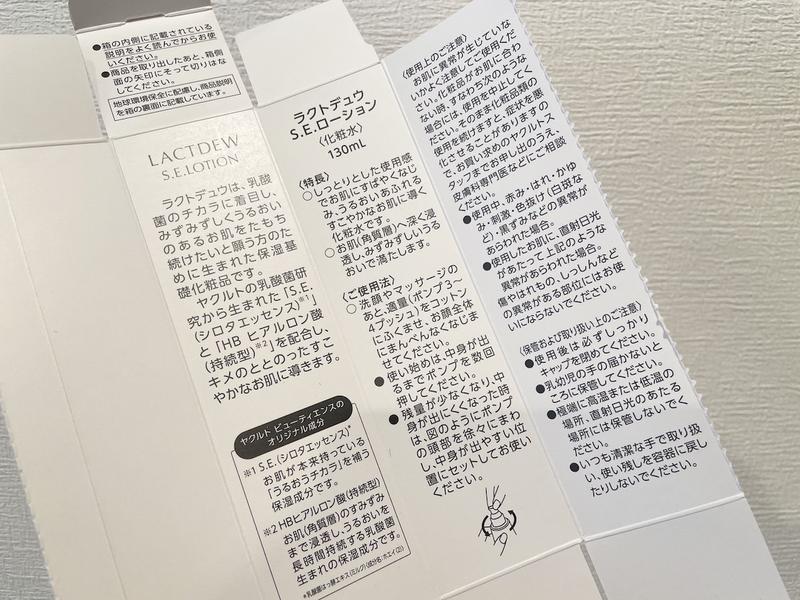 ●箱の内側に記載されている
説明をよく読んでからお使
いください。
●商品を取り出したあと、箱側
面の矢印にそって切りはな
してください。
地球環境保全に配慮し、商品説明
を箱の裏面に記載しています。
LACTDEW
S.E.LOTION
ラクトデュウは、乳酸
菌のチカラに着目し、
みずみずしくうるおい
のあるお肌をたもち
続けたいと願う方のた
めに生まれた保湿基
礎化粧品です。
ヤクルトの乳酸菌研
究から生まれた「S.E.
(シロタエッセンス)※1」
と「HB ヒアルロン酸
(持続型)※2」を配合し、
キメのととのったすこ
やかなお肌に導きます。
ヤクルト ビューティエンスの
オリジナル成分
※1 S.E.(シロタエッセンス)*
お肌が本来持っている
「うるおうチカラ」を補う
保湿成分です。
※2 HBヒアルロン酸(持続型)
お肌(角質層)のすみずみ
まで浸透し、うるおいを
長時間持続する乳酸菌
生まれの保湿成分です。
*乳酸菌はっ酵エキス(ミルク)(成分名:ホエイ(2))
ラクトデュウ
S.E.ローション
〈化粧水〉
130mL
〈特長〉
○しっとりとした使用感
でお肌にすばやくなじ
み、うるおいあふれる
すこやかなお肌に導く
化粧水です。
○お肌(角質層)へ深く浸
透し、みずみずしいうる
おいで満たします。
〈ご使用法〉
○洗顔やマッサージの
あと、適量(ポンプ3~
4プッシュ)をコットン
にふくませ、お顔全体
にまんべんなくなじま
せてください。
●使い始めは、中身が出
るまでポンプを数回
押してください。
●残量が少なくなり、中
身が出にくくなった時
は、図のようにポンプ
の頭部を徐々にまわ
し、中身が出やすい位
置にセットしてお使い
ください。
〈使用上のご注意〉
お肌に異常が生じていな
いかよく注意してご使用くだ
さい。化粧品がお肌に合わ
ない時、すなわち次のような
場合には、使用を中止してく
ださい。そのまま化粧品類の
使用を続けますと、症状を悪
化させることがありますの
で、お買い求めのヤクルトス
タッフまでお申し出のうえ、
皮膚科専門医などにご相談
ください。
●使用中、赤み・はれ・かゆ
み・刺激・色抜け(白斑な
ど)・黒ずみなどの異常が
あらわれた場合。
●使用したお肌に、直射日光
があたって上記のような
異常があらわれた場合。
傷やはれもの、しっしんなど
の異常がある部位にはお使
いにならないでください。
〈保管および取り扱い上のご注意〉
●使用後は必ずしっかり
キャップを閉めてください。
●乳幼児の手の届かないと
ころに保管してください。
●極端に高温または低温の
場所、直射日光のあたる
場所には保管しないでく
ださい。
●いつも清潔な手で取り扱
い、使い残しを容器に戻し
たりしないでください。